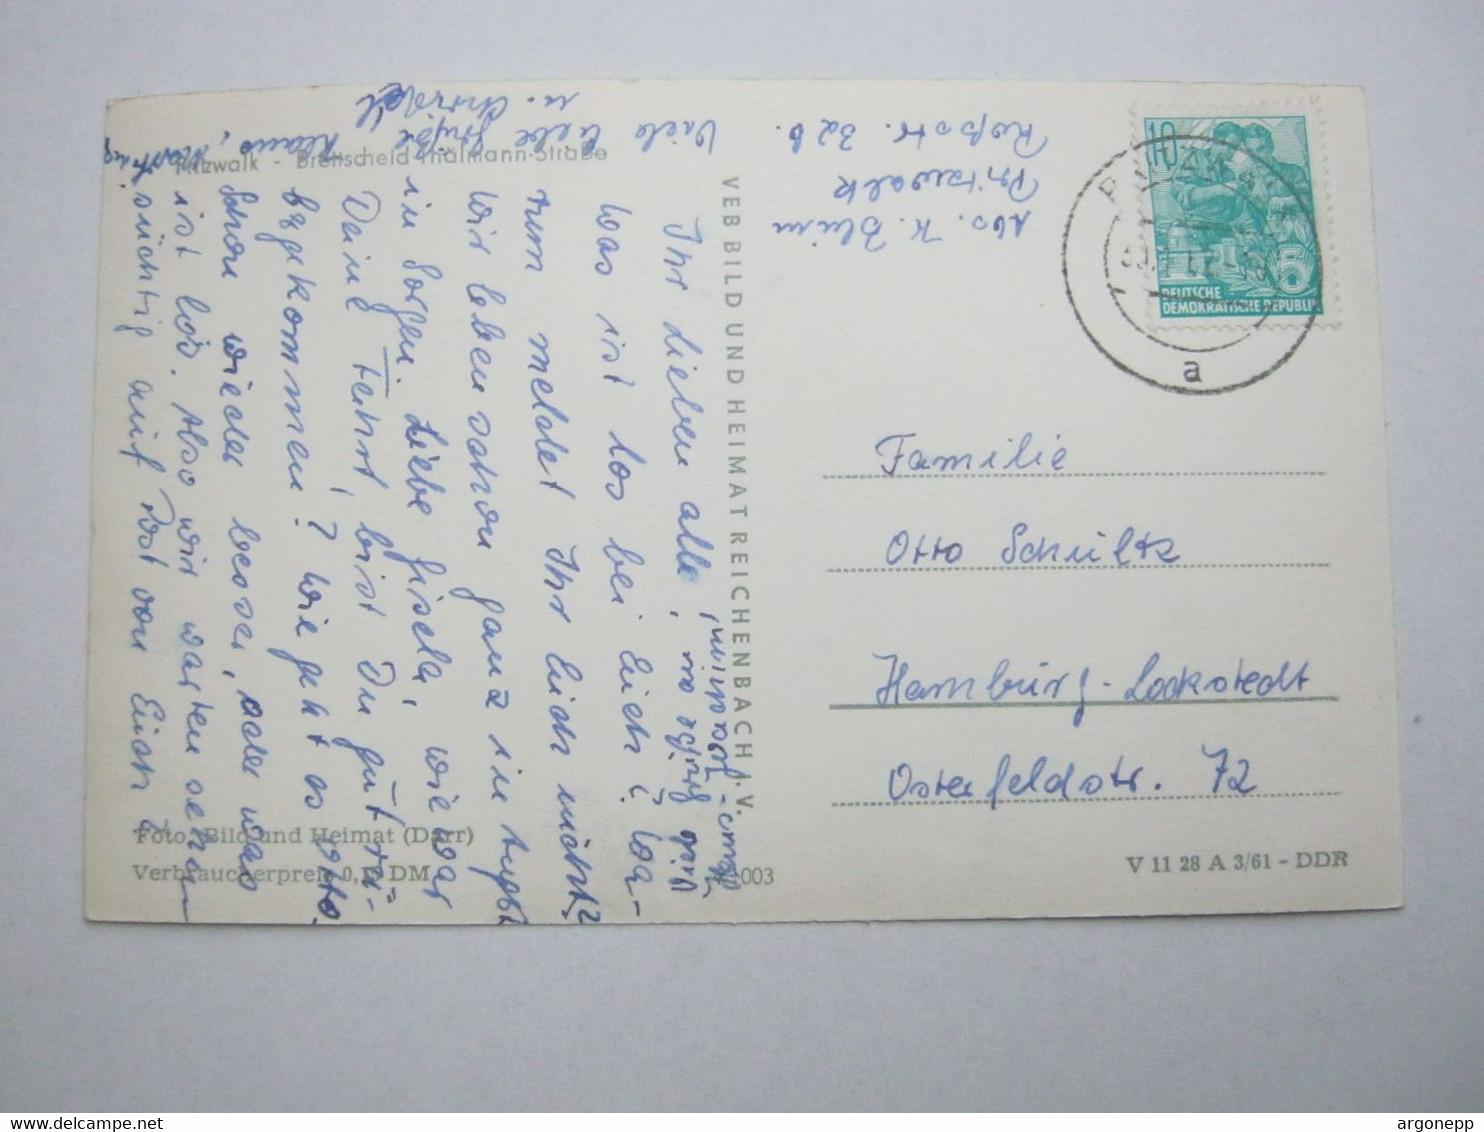 Pritzwalk - Breitscheid-Thälmann-Straße
Ihr lieben alle,
was ist los bei Euch? Wa-
rum meldet Ihr Euch nicht?
Wir leben schon ganz in Angst
in Sorgen. Liebe Gisela, wie war
Deine Fahrt, bist Du gut rü-
bgekommen? Wie geht es Otto.
Schon wieder besser, oder was
ist los. Also wir warten sehn-
süchtig auf Post von Euch
Viele liebe Grüße Klaus,
u. Christel
Viele Grüße an
VEB BILD UND HEIMAT REICHENBACH I.V.
Foto: Bild und Heimat (Darr)
Verbraucherpreis 0, DM
003
Abs. K. Blum
Pritzwalk
Roßstr. 32 b.
10
5
DEUTSCHE
DEMOKRATISCHE REPUBLIK
a
Familie
Otto Schultz
Hamburg-Lockstedt
Osterfeldstr. 72
V 11 28 A 3/61 - DDR
www.delcampe.net
argonepp